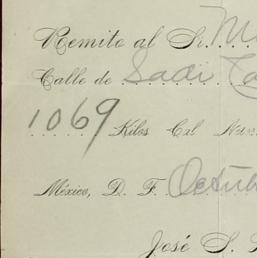 Remito al Sr. M
Calle de Sadi Ca
1069 Kilos Cal
México, D. F. Octub
José S.